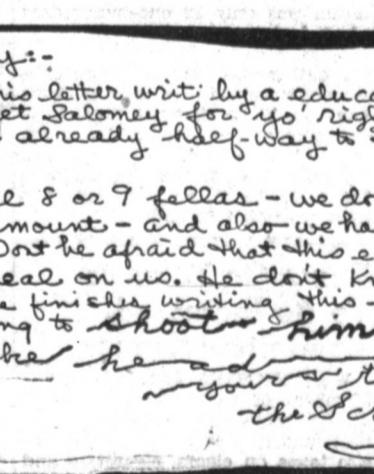 y:-
his letter writ by a educa
et Salomey for yo' righ
already half-way to
8 or 9 fellas - we do
mount - and also we ha
Dont be afraid that this e
eal on us. He don't K
e finishes writing this -
ng to shoot him
he ad
yours t
the Sc